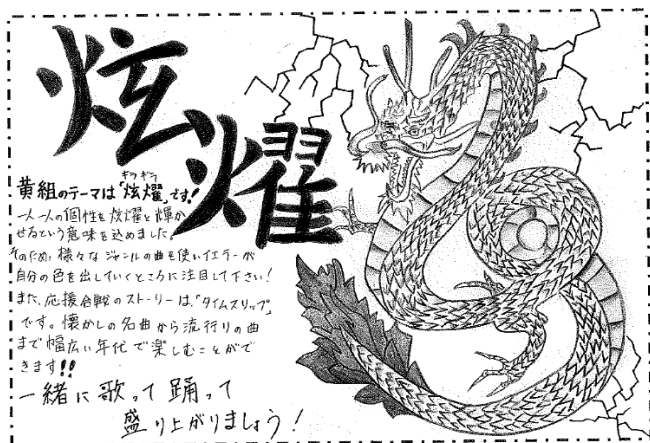 炫燿
黄組のテーマは「炫燿」です!
ギラギラ
一人一人の個性を炫燿と輝か
せるという意味を込めました。
そのため、様々なジャンルの曲を使いイエラーが
自分の色を出していくところに注目して下さい!
また、応援合戦のストーリーは、「タイムスリップ」
です。懐かしの名曲から流行りの曲
まで幅広い年代で楽しむことがで
きます!!
一緒に歌って踊って
盛り上がりましょう!